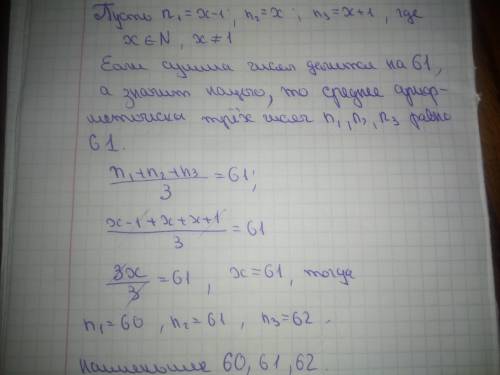 Пусть n₁=x-1; n₂=x; n₃=x+1, где
x∈N, x≠1
Если сумма чисел делится на 61,
а значит нацело, то среднее ариф-
метическ трёх чисел n₁, n₂, n₃ равно
61.
(n₁+n₂+n₃)/3 = 61;
(x-1+x+x+1)/3 = 61
3x/3 = 61, x=61, тогда
n₁=60, n₂=61, n₃=62.
наименьшие 60, 61, 62.